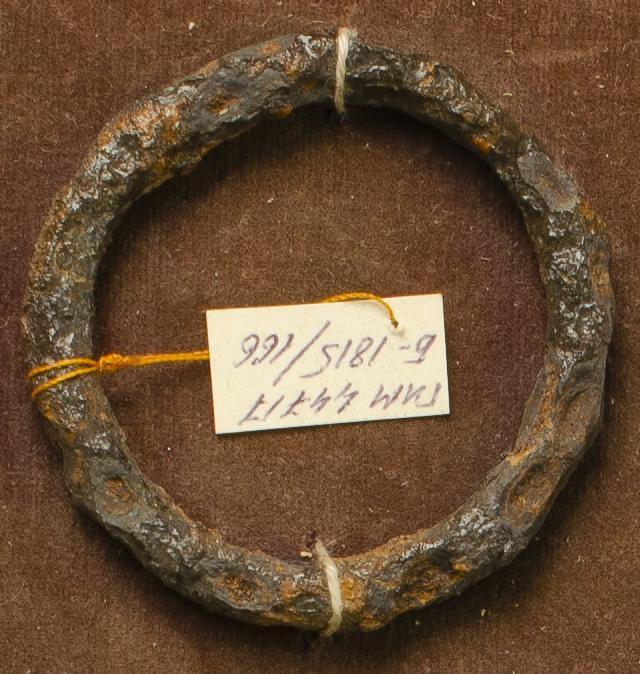 ГИМ 44717
Б-1815/166